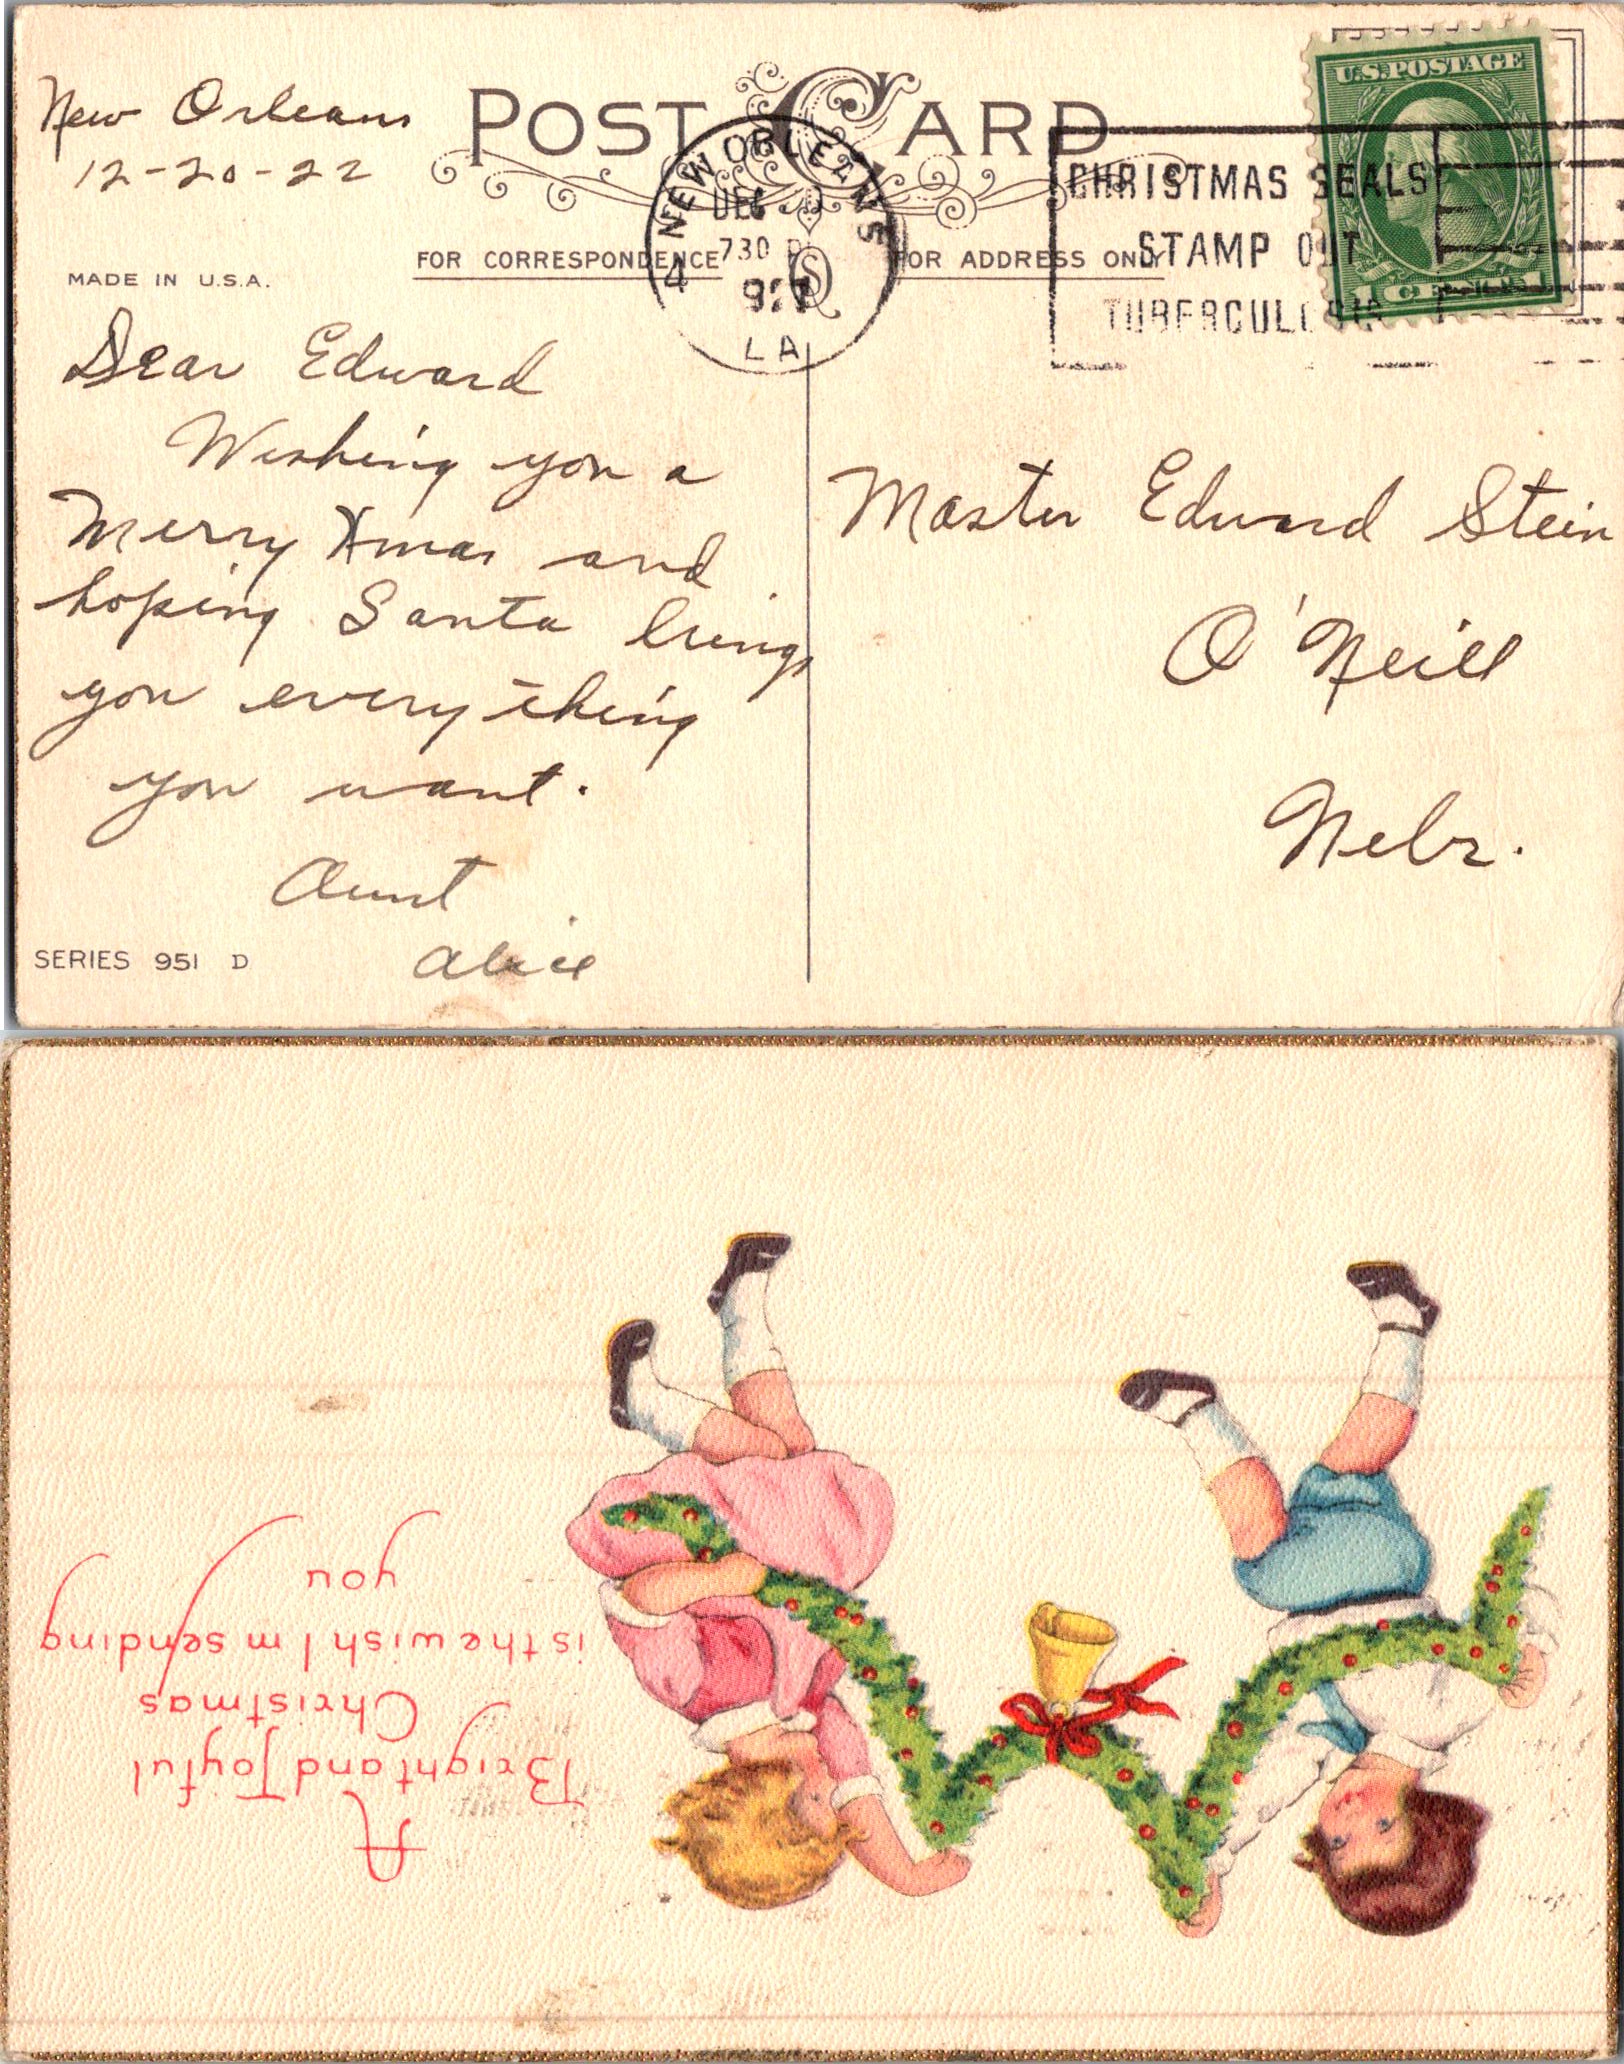 New Orleans
12-20-22
POST CARD
FOR CORRESPONDENCE
FOR ADDRESS ONLY
MADE IN U.S.A.
NEW ORLEANS
DEC
730 P
LA
CHRISTMAS SEALS
STAMP OUT
TUBERCULOSIS
U.S. POSTAGE
1 C
Dear Edward
Wishing you a
Merry Xmas and
hoping Santa brings
you everything
you want.
Aunt
Alice
SERIES 951 D
Master Edward Stein
O'Neill
Nebr.
A
Bright and Joyful
Christmas
is the wish I'm sending
you